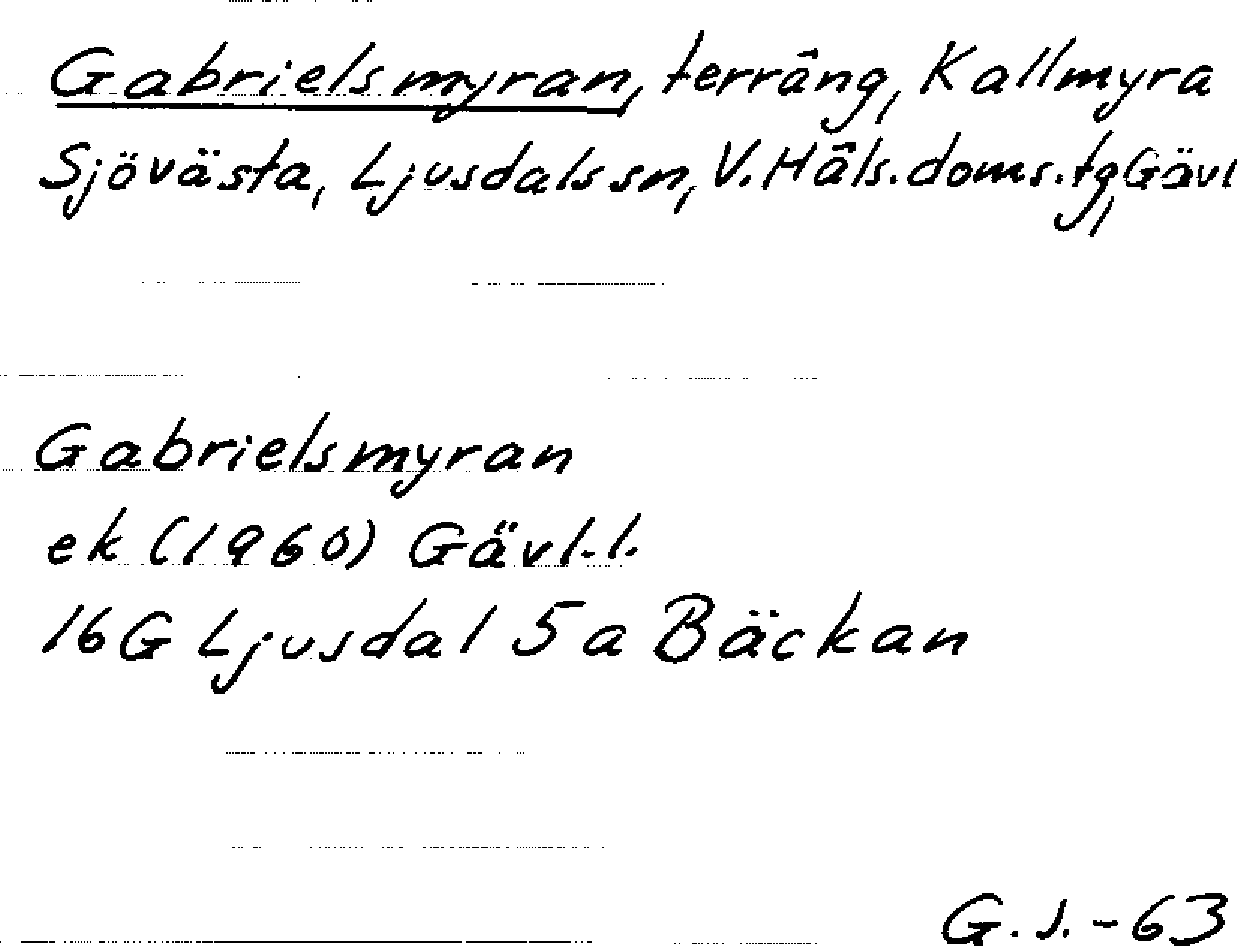 Gabrielsmyran, terräng, Kallmyra
Sjövästa, Ljusdals sn, V. Häls. doms. tg, Gävl
Gabrielsmyran
ek (1960) Gävl. l.
16G Ljusdal 5a Bäckan
G. J. - 63